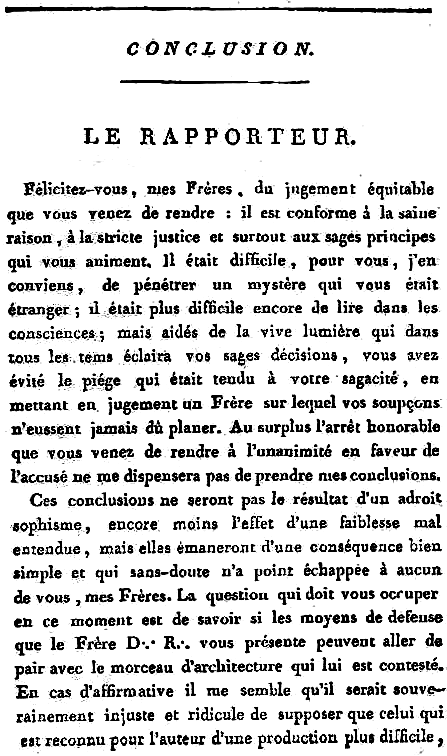 CONCLUSION.
LE RAPPORTEUR.
Félicitez-vous, mes Frères, du jugement équitable
que vous venez de rendre : il est conforme à la saine
raison, à la stricte justice et surtout aux sages principes
qui vous animent. Il était difficile, pour vous, j'en
conviens, de pénétrer un mystère qui vous était
étranger ; il était plus difficile encore de lire dans les
consciences ; mais aidés de la vive lumière qui dans
tous les tems éclaira vos sages décisions, vous avez
évité le piége qui était tendu à votre sagacité, en
mettant en jugement un Frère sur lequel vos soupçons
n'eussent jamais dû planer. Au surplus l'arrêt honorable
que vous venez de rendre à l'unanimité en faveur de
l'accusé ne me dispensera pas de prendre mes conclusions.
Ces conclusions ne seront pas le résultat d'un adroit
sophisme, encore moins l'effet d'une faiblesse mal
entendue, mais elles émaneront d'une conséquence bien
simple et qui sans-doute n'a point échappée à aucun
de vous, mes Frères. La question qui doit vous occuper
en ce moment est de savoir si les moyens de defense
que le Frère D∴ R∴ vous présente peuvent aller de
pair avec le morceau d'architecture qui lui est contesté.
En cas d'affirmative il me semble qu'il serait souve-
rainement injuste et ridicule de supposer que celui qui
est reconnu pour l'auteur d'une production plus difficile,